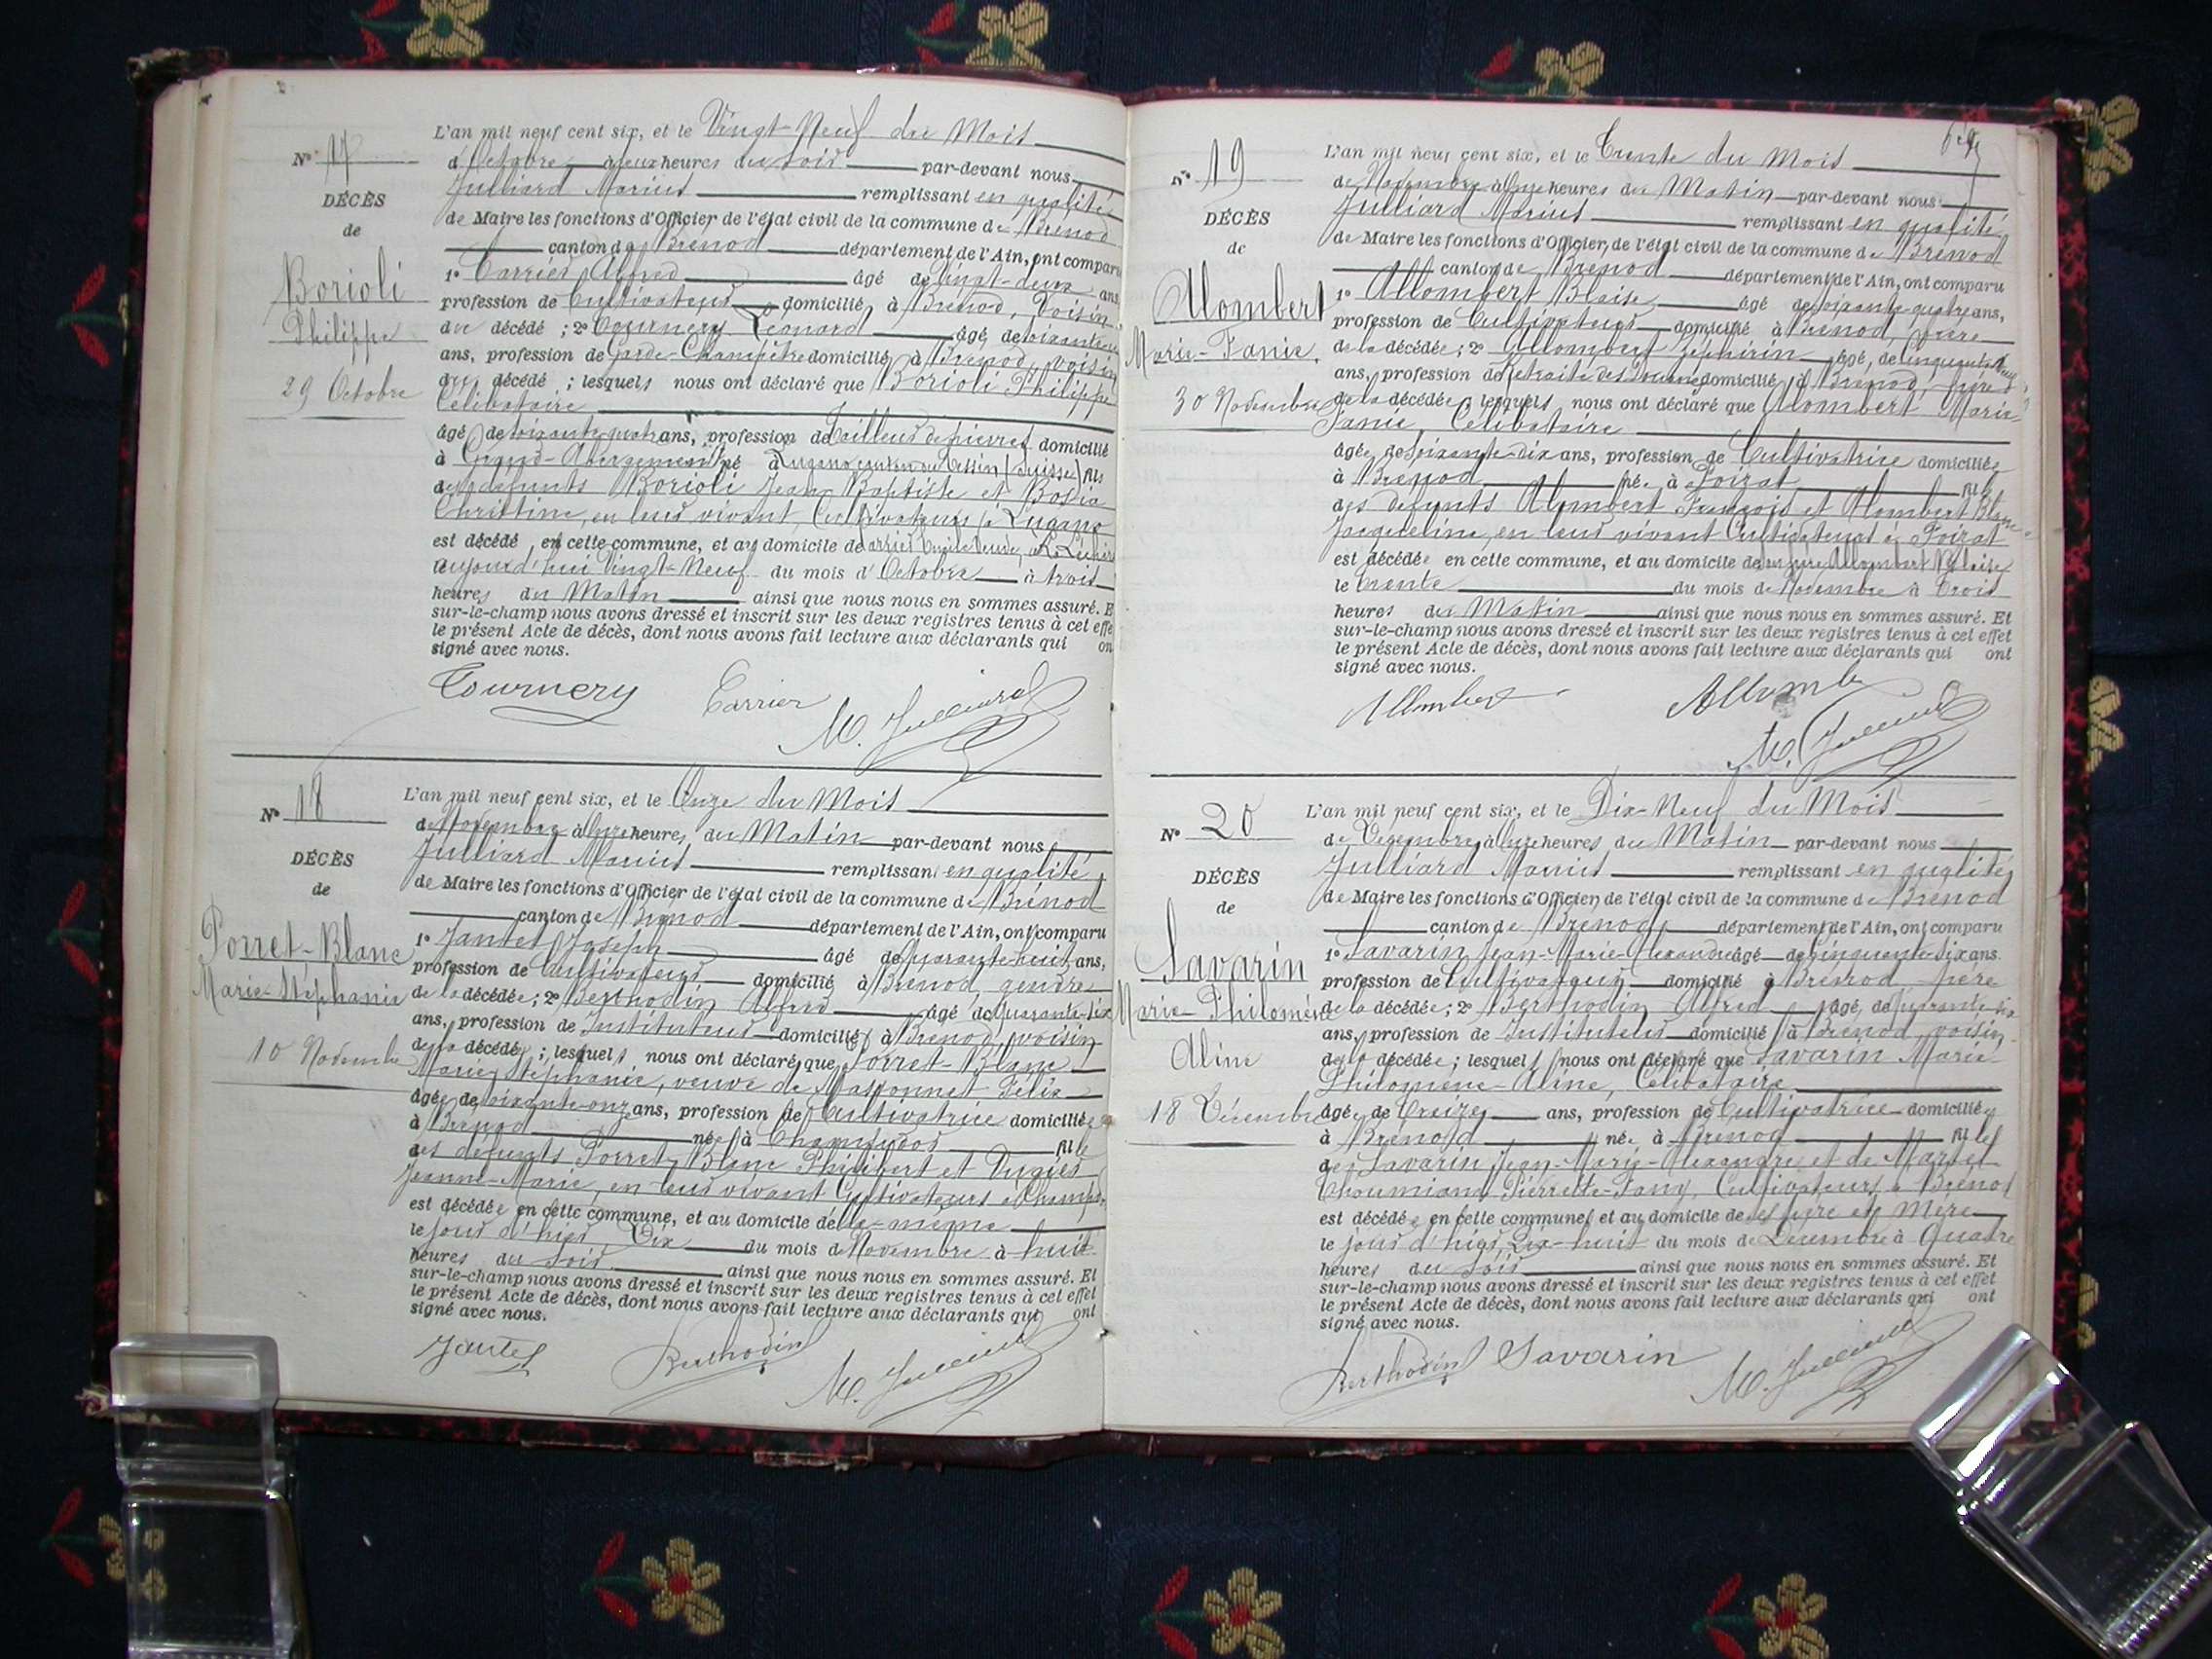 N° 17
DÉCÈS
de
Borioli
Philippe
29 Octobre
L'an mil neuf cent six, et le Vingt-Neuf du Mois
d'Octobre à deux heures du soir par-devant nous
Julliard Marius remplissant en qualité
de Maire les fonctions d'Officier de l'état civil de la commune de Brénod
canton de Brénod département de l'Ain, ont comparu
1° Carrier Alfred âgé de vingt-deux ans
profession de Cultivateur domicilié à Brénod, Voisin
du décédé ; 2° Tournery Léonard âgé de soixante
ans, profession de Garde-Champêtre domicilié à Brénod, voisin
du décédé ; lesquels nous ont déclaré que Borioli Philippe
Célibataire
âgé de soixante-quatre ans, profession de Tailleur de pierres domicilié
à Grand-Abergement né à Lugano canton du Tessin (Suisse) fils
des défunts Borioli Jean Baptiste et Bosia
Christine, en leur vivant Cultivateurs à Lugano
est décédé en cette commune, et au domicile de Carrier veuve,
aujourd'hui Vingt-Neuf du mois d'Octobre à trois
heures du Matin ainsi que nous nous en sommes assuré. E
sur-le-champ nous avons dressé et inscrit sur les deux registres tenus à cet effe
le présent Acte de décès, dont nous avons fait lecture aux déclarants qui on
signé avec nous.
Tournery Carrier M. Julliard
N° 18
DÉCÈS
de
Porret-Blanc
Marie-Stéphanie
10 Novembre
L'an mil neuf cent six, et le Onze du Mois
de Novembre à Onze heures du Matin par-devant nous
Julliard Marius remplissant en qualité
de Maire les fonctions d'Officier de l'état civil de la commune de Brénod
canton de Brénod département de l'Ain, ont comparu
1° Jantet Joseph âgé de quarante-huit ans,
profession de Cultivateur domicilié à Brénod, gendre
de la décédée ; 2° Berthodin Alfred âgé de Quarante-six
ans, profession de Instituteur domicilié à Brénod, voisin
de la décédée ; lesquels nous ont déclaré que Porret-Blanc
Marie Stéphanie, veuve de Massonnet Félix
âgée de soixante-onze ans, profession de Cultivatrice domiciliée
à Brénod née à Champdor fille
des défunts Porret-Blanc Philibert et
Jeanne-Marie, en leur vivant Cultivateurs à Champdor
est décédée en cette commune, et au domicile d'elle-même
le jour d'hier Dix du mois de Novembre à huit
heures du soir ainsi que nous nous en sommes assuré. Et
sur-le-champ nous avons dressé et inscrit sur les deux registres tenus à cet effet
le présent Acte de décès, dont nous avons fait lecture aux déclarants qui ont
signé avec nous.
Jantet Berthodin M. Julliard
N° 19
DÉCÈS
de
Allombert
Marie-Fanie
30 Novembre
L'an mil neuf cent six, et le Trente du Mois
de Novembre à Onze heures du Matin par-devant nous
Julliard Marius remplissant en qualité
de Maire les fonctions d'Officier de l'état civil de la commune de Brénod
canton de Brénod département de l'Ain, ont comparu
1° Allombert Blaise âgé de soixante-quatre ans,
profession de Cultivateur domicilié à Brénod, frère
de la décédée ; 2° Allombert Zéphirin âgé de Cinquante-neuf
ans, profession de Retraité des Douanes domicilié à Brénod, frère
de la décédée ; lesquels nous ont déclaré que Allombert Marie-
Fanie, Célibataire
âgée de Soixante-dix ans, profession de Cultivatrice domiciliée
à Brénod née à Izoirat fille
des défunts Allombert François et Allombert Blanc
Jacqueline, en leur vivant Cultivateurs à
est décédée en cette commune, et au domicile de son frère Allombert Blaise
le trente du mois de Novembre à Trois
heures du Matin ainsi que nous nous en sommes assuré. Et
sur-le-champ nous avons dressé et inscrit sur les deux registres tenus à cet effet
le présent Acte de décès, dont nous avons fait lecture aux déclarants qui ont
signé avec nous.
Allombert Allombe
M. Julliard
N° 20
DÉCÈS
de
Savarin
Marie-Philomène
Aline
18 Décembre
L'an mil neuf cent six, et le Dix-Neuf du Mois
de Décembre à Onze heures du Matin par-devant nous
Julliard Marius remplissant en qualité
de Maire les fonctions d'Officier de l'état civil de la commune de Brénod
canton de Brénod département de l'Ain, ont comparu
1° Savarin Jean-Marie-Alexandre âgé de cinquante-six ans
profession de Cultivateur domicilié à Brénod, père
de la décédée ; 2° Berthodin Alfred âgé de quarante-six
ans, profession de Instituteur domicilié à Brénod, voisin
de la décédée ; lesquels nous ont déclaré que Savarin Marie
Philomène-Aline, Célibataire
âgée de Treize ans, profession de Cultivatrice domiciliée
à Brénod née à Brénod fille
de Savarin Jean-Marie-Alexandre et de Martel
Pierrette-Fany, Cultivateurs à Brénod
est décédée en cette commune et au domicile de ses père et Mère
le jour d'hier, Dix-huit du mois de Décembre à Quatre
heures du soir ainsi que nous nous en sommes assuré. Et
sur-le-champ nous avons dressé et inscrit sur les deux registres tenus à cet effet
le présent Acte de décès, dont nous avons fait lecture aux déclarants qui ont
signé avec nous.
Berthodin Savarin M. Julliard